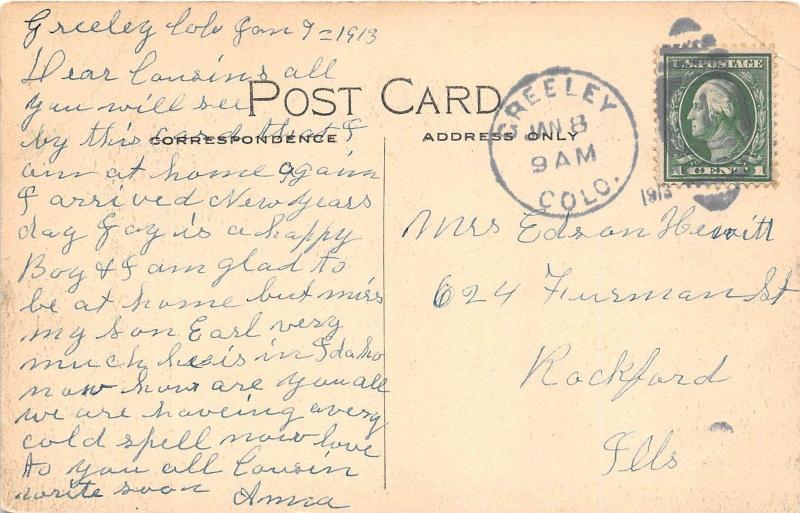 Greeley Colo Jan 7 = 1913
Dear Cousins all
you will see
by this card that I
am at home again
I arrived New Years
day Jay is a happy
Boy & I am glad to
be at home but miss
my son Earl very
much he is in Idaho
now how are you all
we are haveing a very
cold spell now love
to you all Cousin
write soon Anna
POST CARD
CORRESPONDENCE
ADDRESS ONLY
GREELEY
JAN 8
9 AM
COLO.
1913
U.S. POSTAGE
1 CENT 1
Mrs Edson Hewitt
624 Furman St
Rockford
Ills